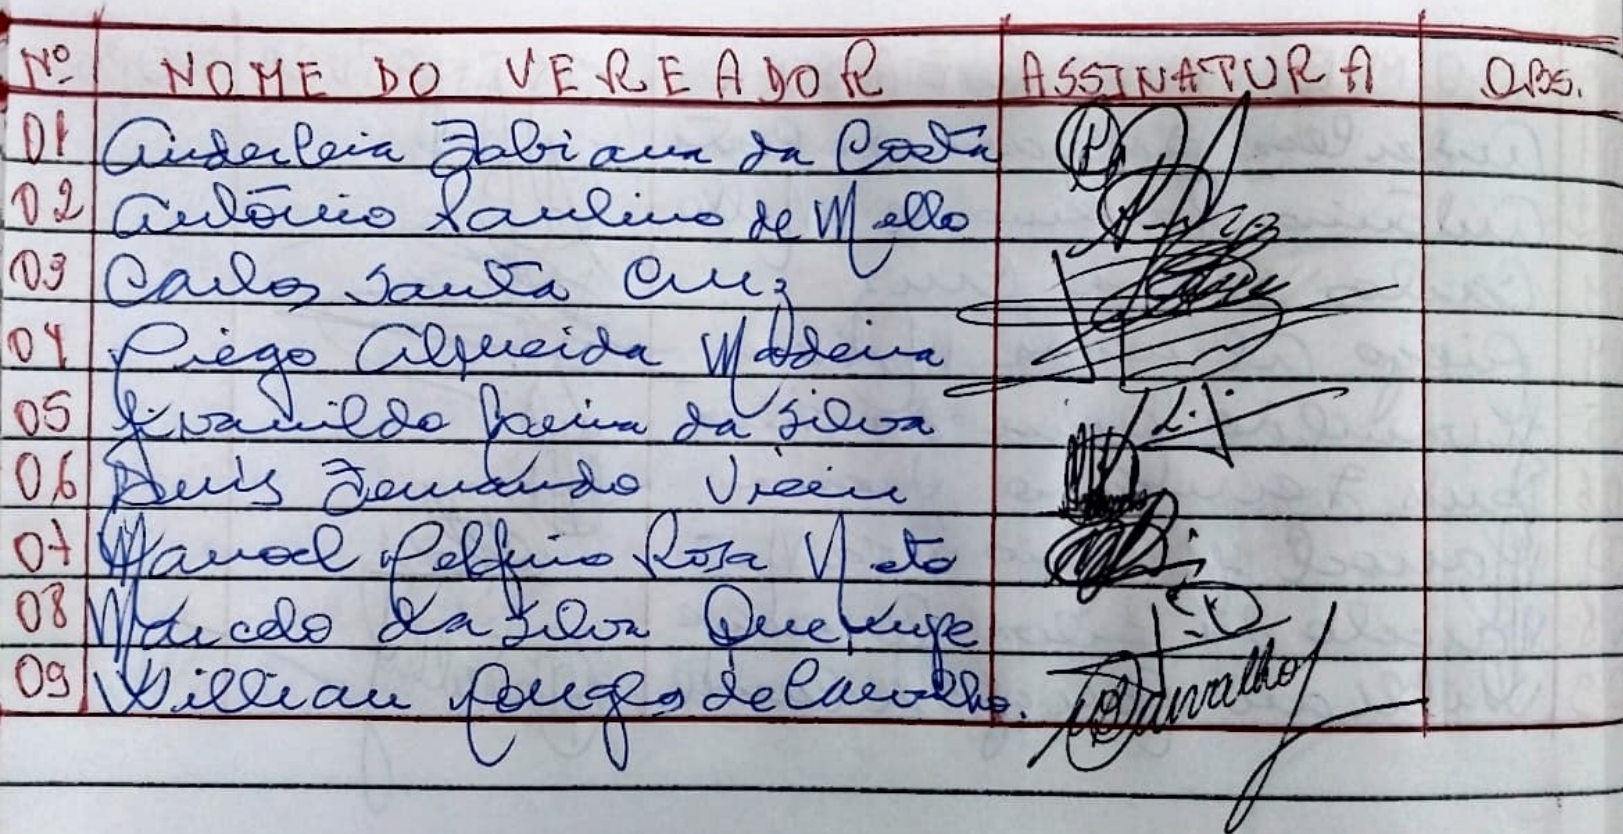 Nº NOME DO VEREADOR ASSINATURA OBS.
01 Anderleia Fabiana da Costa
02 Antônio Paulino de Mello
03 Carlos Santa Cruz
04 Diego Almeida Madeira
05 Jivanildo Vieira da Silva
06 Luis Fernando Vieira
07 Manoel Delfino Rosa Neto
08 Marcelo da Silva
09 Willian Douglas de Carvalho. Carvalho